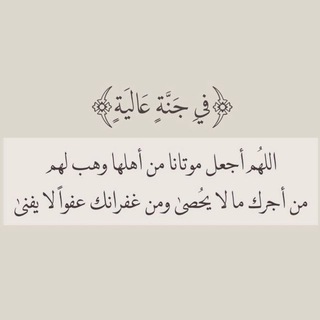 ﴿فِي جَنَّةٍ عَالِيَةٍ﴾
اللهُم أجعل موتانا من أهلها وهب لهم
من أجرك ما لا يحُصىٰ ومن غفرانك عفواً لا يفنىٰ